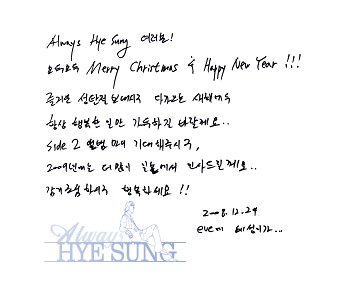 Always Hye Sung 여러분!
모두모두 Merry Christmas & Happy New Year !!!
즐거운 성탄절 보내시구 다가오는 새해에두
항상 행복한 일만 가득하길 바랄께요..
Side 2 앨범 마니 기대해주시구,
2009년에는 더 많이 일들에서 인사드릴께요..
감기조심하시구 행복하세요 !!
2008.12.24
eve에 혜성이가...
Always
HYE SUNG